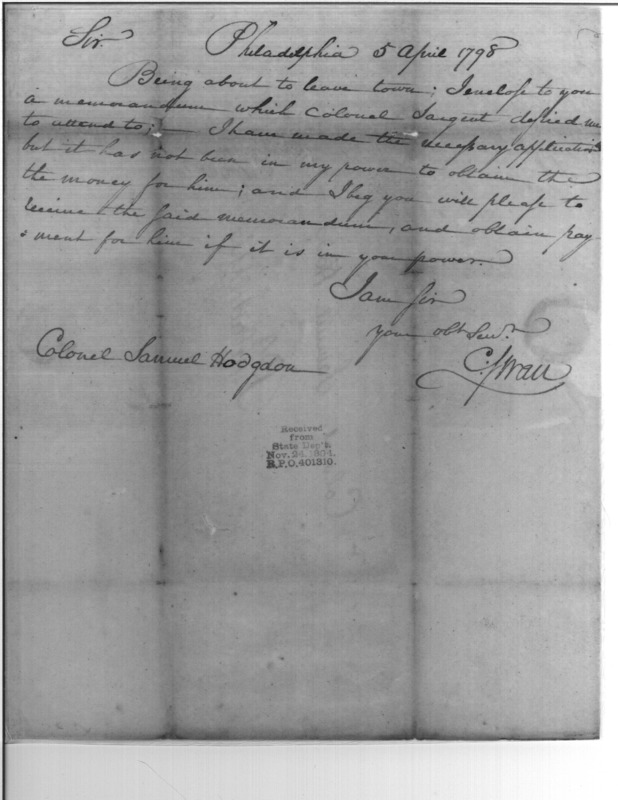 Sir. Philadelphia 5 April 1798
Being about to leave town; I enclose to you
a memorandum which Colonel Sargent desired me
to attend to; — I have made the necessary applications
but it has not been in my power to obtain the
the money for him; and I beg you will please to
receive the said memorandum, and obtain pay
ment for him if it is in your power.
I am Sir
your obt. Servt.
C. Swan
Colonel Samuel Hodgdon
Received
from
State Dep't.
Nov. 24, 1894.
R.P.O. 401310.